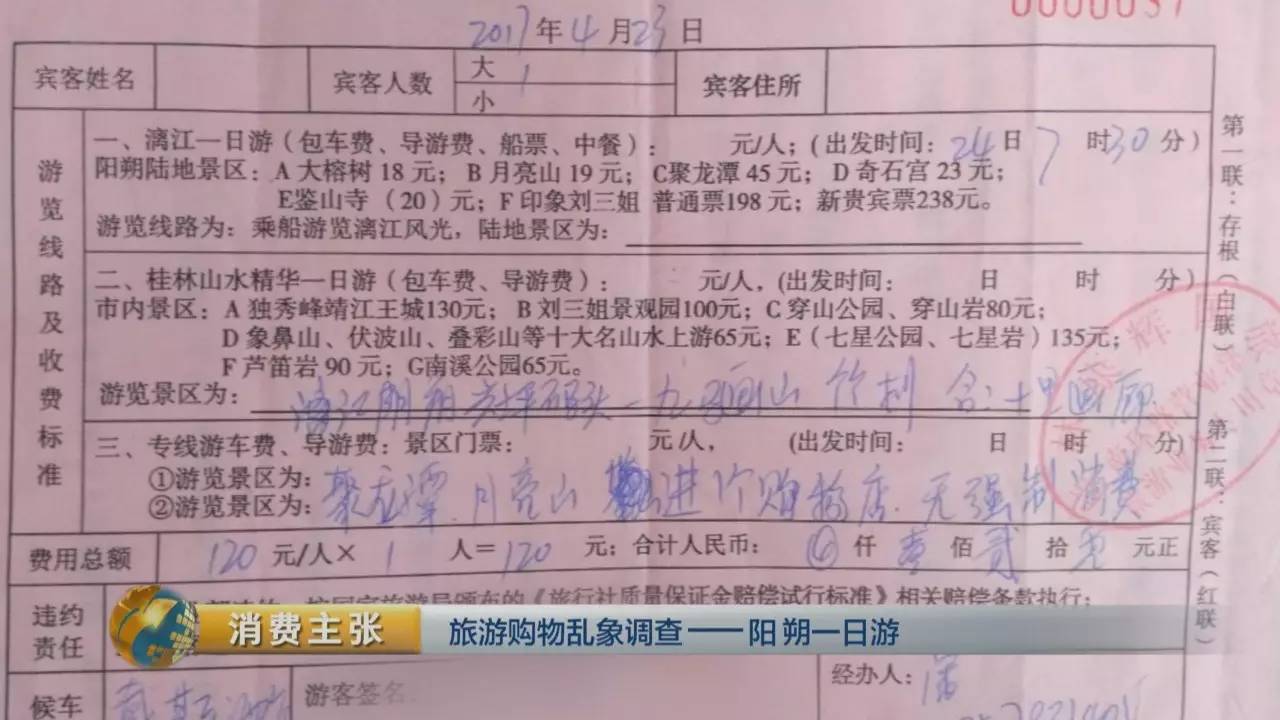 0000037
2017年4月23日
宾客姓名 宾客人数 大 1 小 宾客住所
游览线路及收费标准
一、漓江一日游（包车费、导游费、船票、中餐）： 元/人；（出发时间：24日7时30分）
阳朔陆地景区：A大榕树18元；B月亮山19元；C聚龙潭45元；D奇石宫23元；
E鉴山寺（20）元；F印象刘三姐 普通票198元；新贵宾票238元。
游览线路为：乘船游览漓江风光，陆地景区为：
二、桂林山水精华一日游（包车费、导游费）： 元/人，（出发时间： 日 时 分）
市内景区：A独秀峰靖江王城130元；B刘三姐景观园100元；C穿山公园、穿山岩80元；
D象鼻山、伏波山、叠彩山等十大名山水上游65元；E（七星公园、七星岩）135元；
F芦笛岩90元；G南溪公园65元。
游览景区为：漓江阳朔 码头一九马画山 竹 十里画廊
三、专线游车费、导游费：景区门票： 元/人，（出发时间： 日 时 分）
①游览景区为：
②游览景区为：
聚龙潭.月亮山 进个购物店.无强制消费
费用总额 120元/人×1人=120元；合计人民币： 仟壹佰贰拾 元正
违约责任
《旅行社质量保证金赔偿试行标准》相关赔偿条款执行；
候车 游客签名 经办人：
第一联：存根（白联）
第二联：宾客（红联）
消费主张
旅游购物乱象调查——阳朔一日游